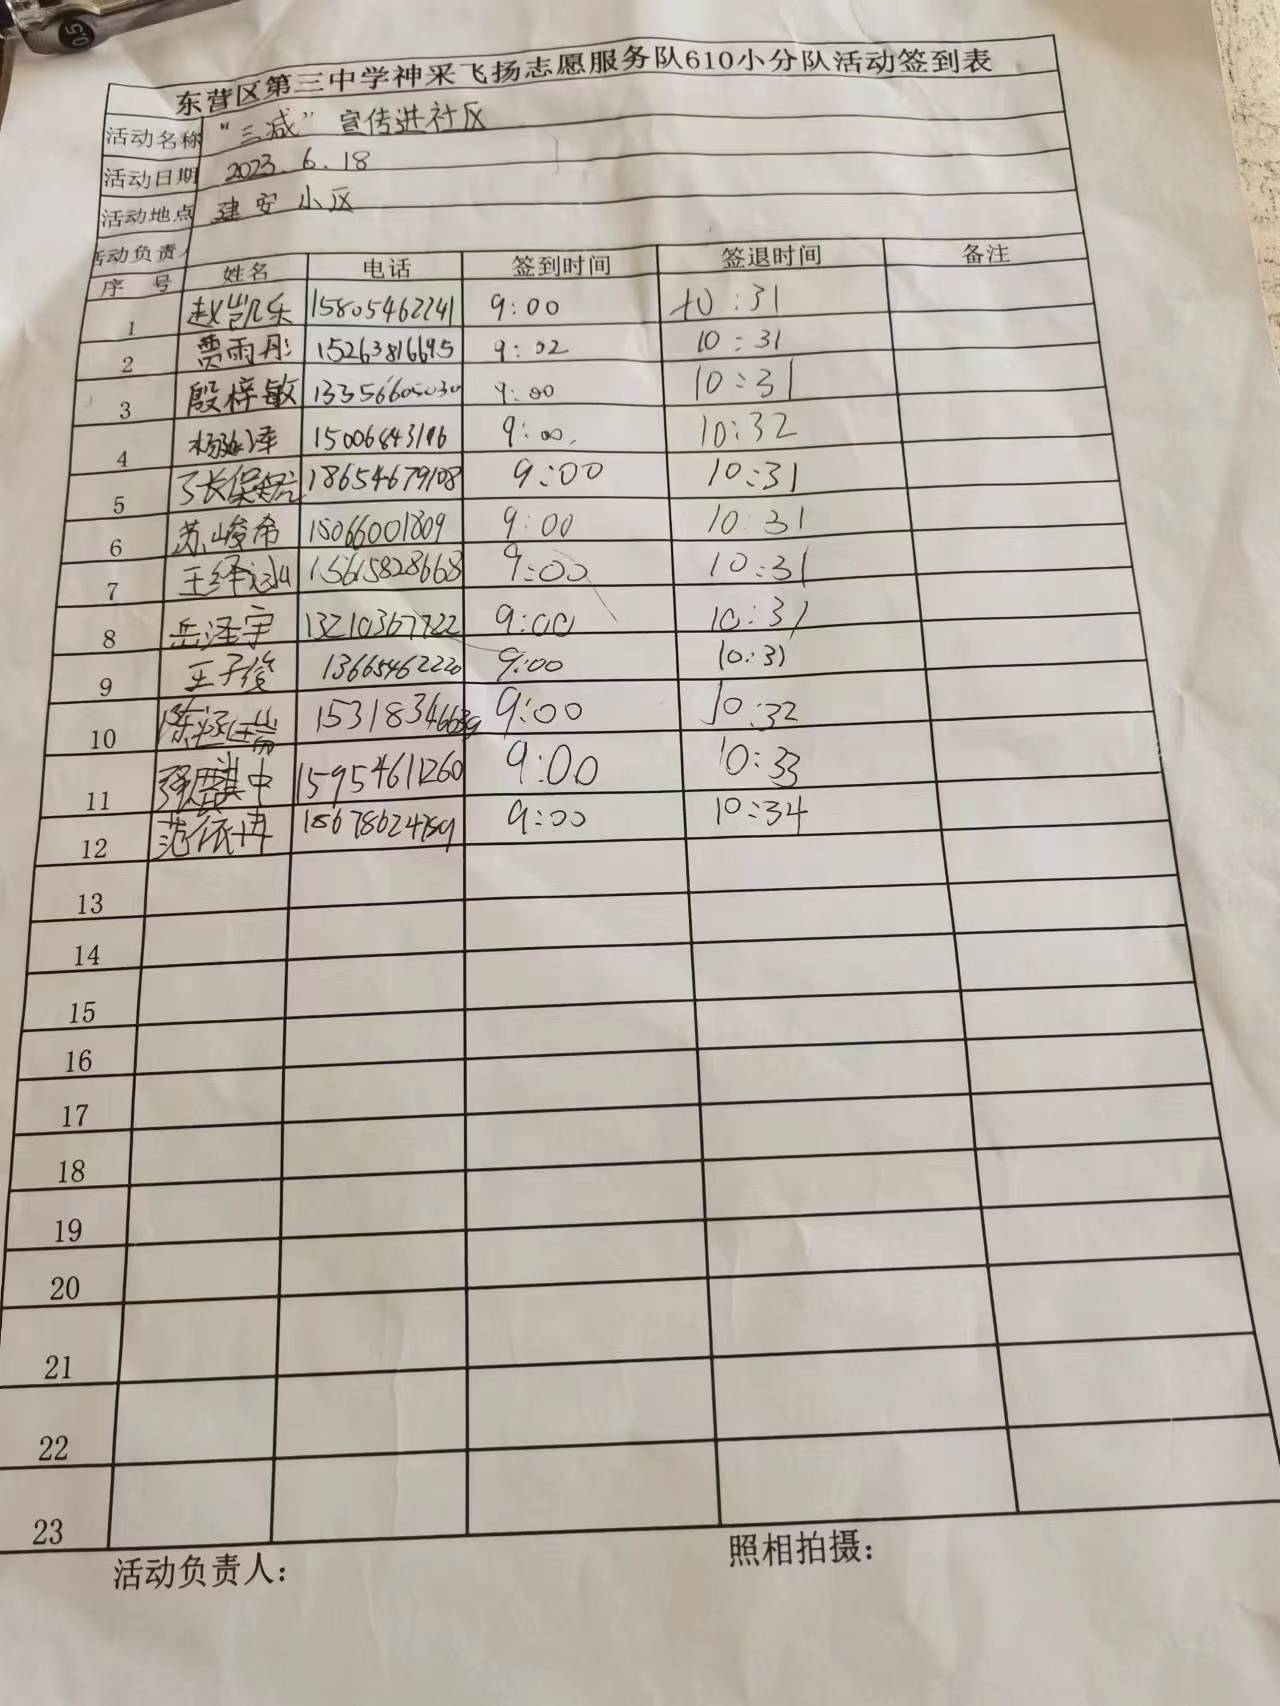 0.5
东营区第三中学神采飞扬志愿服务队610小分队活动签到表
活动名称 “三减”宣传进社区
活动日期 2023.6.18
活动地点 建安小区
活动负责人
序 号 姓名 电话 签到时间 签退时间 备注
1 赵凯乐 15805462241 9:00 10:31
2 贾雨彤 15263816695 9:02 10:31
3 殷梓敏 13356605030 9:00 10:31
4 15006843196 9:00 10:32
5 张保 18654679108 9:00 10:31
6 苏峻希 15066001809 9:00 10:31
7 王绎 15615828668 9:00 10:31
8 岳泽宇 13210367722 9:00 10:31
9 王子俊 13665462220 9:00 10:31
10 陈 9:00 10:32
11 强麒中 15954611260 9:00 10:33
12 范依冉 9:00 10:34
13
14
15
16
17
18
19
20
21
22
23
活动负责人: 照相拍摄: